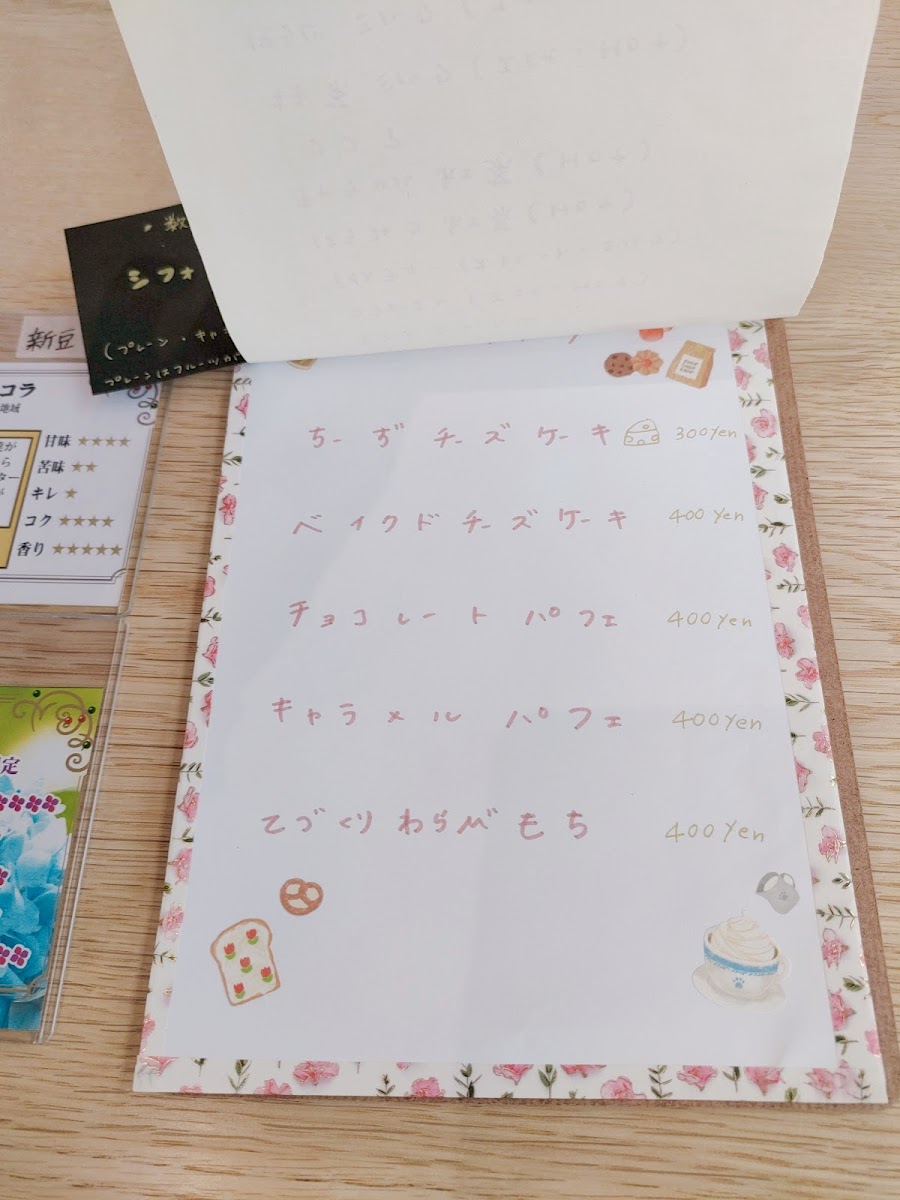 数
シフォ
(プレーン・キャラ
プレーンはフルーツか
新豆
コラ
地域
甘味 ★★★★
苦味 ★★
キレ ★
コク ★★★★
香り ★★★★★
定
ちーぢチーズケーキ 300yen
ベイクドチーズケーキ 400yen
チョコレートパフェ 400yen
キャラメルパフェ 400yen
てづくりわらびもち 400yen